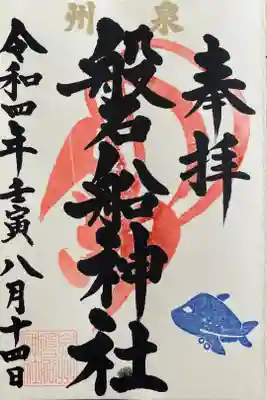 泉州
奉拝
磐船神社
令和四年壬寅八月十四日